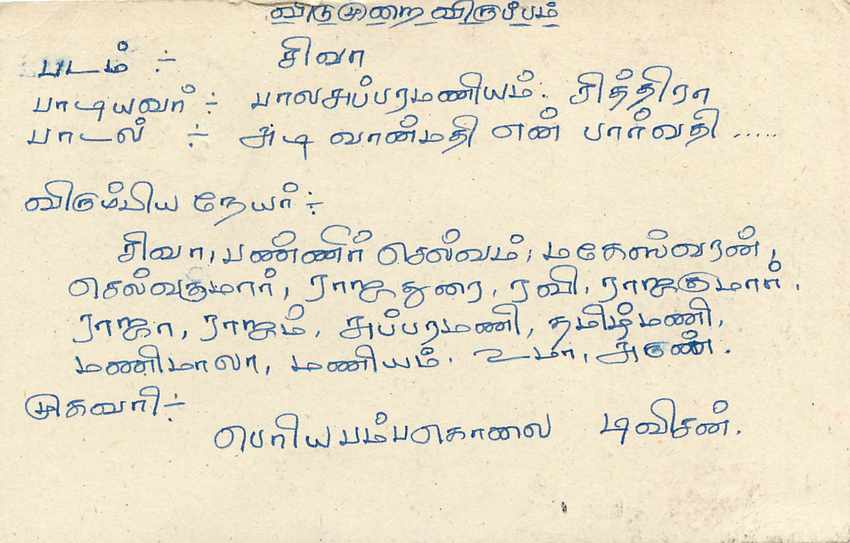 விடுமுறை விருப்பம்
படம் :- சிவா
பாடியவர் :- பாலசுப்பரமணியம். சித்திரா
பாடல் :- அடி வான்மதி என் பார்வதி .....
விரும்பிய நேயர் :-
சிவா, பண்ணிர் செல்வம், மகேஸ்வரன்,
செல்வகுமார், ராஜதுரை, ரவி, ராஜகுமார்.
ராஜா, ராஜம், சுப்பரமணி, தமிழ்மணி,
மணிமாலா, மணியம். உமா, அருண்.
முகவரி :-
பெரியபம்பகொலை டிவிசன்.